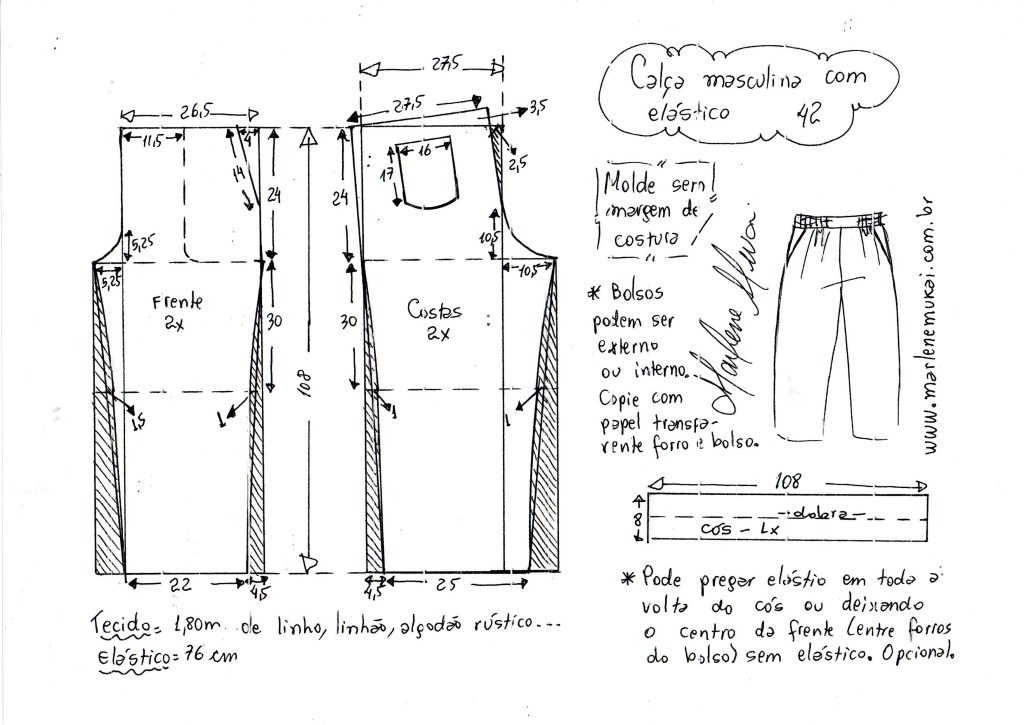 Calça masculina com
elástico 42
27,5
27,5
3,5
26,5
11,5
4
14
24
24
16
17
2,5
10,5
5,25
5,25
10,5
Frente
2x
Costas
2x
30
30
108
1,5
1
1
1
22
4,5
4,5
25
Molde sem
margem de
costura
* Bolsos
podem ser
externo
ou interno.
Copie com
papel transpa-
rente forro e bolso.
Marlene Mukai
www.marlenemukai.com.br
108
8
dobra
cós - 1x
Tecido= 1,80m de linho, linhão, algodão rústico...
Elástico=76 cm
* Pode pregar elástio em toda a
volta do cós ou deixando
o centro da frente (entre forros
do bolso) sem elástico. Opcional.